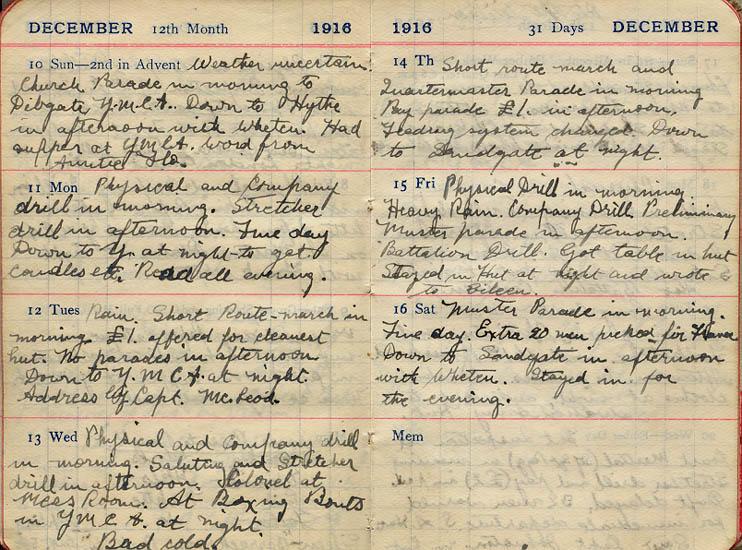 DECEMBER 12th Month 1916
10 Sun—2nd in Advent Weather uncertain
Church Parade in morning to
Dibgate Y.M.C.A. Down to Hythe
in afternoon with Wheten. Had
supper at Y.M.C.A. word from
Auntie Flo.
11 Mon Physical and Company
drill in morning. Stretcher
drill in afternoon. Fine day
Down to Y. at night to get
Candles etc. Read all evening.
12 Tues Rain. Short Route-march in
morning. £1. offered for cleanest
hut. No parades in afternoon
Down to Y.M.C.A. at night.
Address by Capt. McLeod.
13 Wed Physical and Company drill
in morning. Saluting and Stretcher
drill in afternoon. Colonel at
Mess Room. At Boxing Bouts
in Y.M.C.A. at night.
"Bad cold."
1916 31 Days DECEMBER
14 Th Short route march and
Quartermaster Parade in morning
Pay parade £1. in afternoon.
Feeding system changed. Down
to Sandgate at night.
15 Fri Physical Drill in morning
Heavy Rain. Company Drill Preliminary
Muster parade in afternoon.
Battalion Drill. Got table in hut
Stayed in hut at night and wrote
to Eileen.
16 Sat Muster Parade in morning.
Fine day. Extra 20 men picked for France
Down to Sandgate in afternoon
with Wheten. Stayed in for
the evening.
Mem